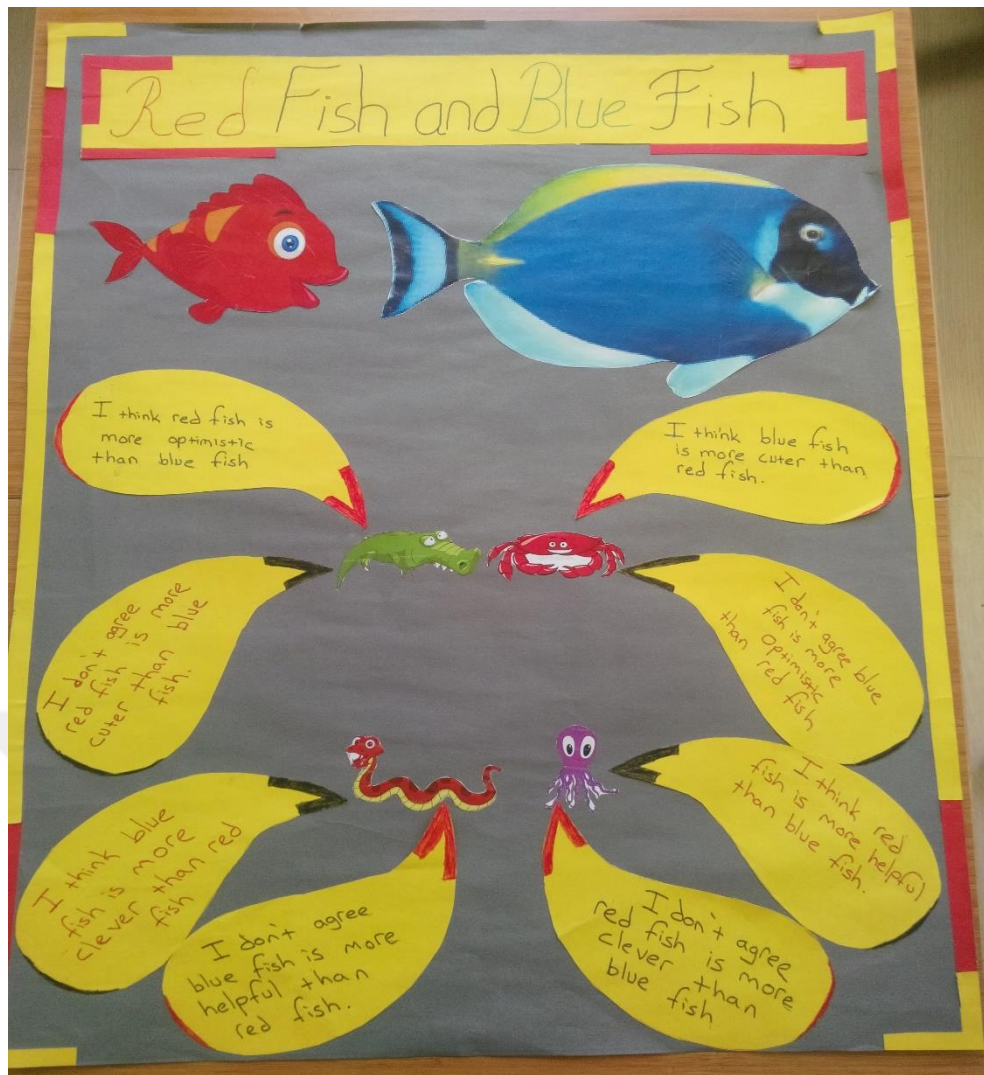 Red Fish and Blue Fish
I think red fish is
more optimistic
than blue fish
I think blue fish
is more cuter than
red fish.
I don't agree
red fish is more
cuter than blue
fish.
I don't agree blue
fish is more
optimistic
than red fish
I think blue
fish is more
clever than red
fish
I think red
fish is more helpful
than blue fish.
I don't agree
blue fish is more
helpful than
red fish.
I don't agree
red fish is more
clever than
blue fish